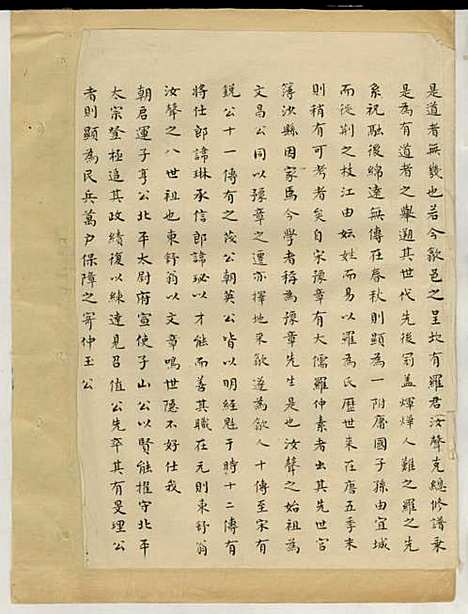 是道者無幾也若今歙邑之呈坎有羅君汝聲克總修譜乘
是為有道者之舉遡其世代先後冠蓋煇煌人難之羅之先
系祝融後綿遠無傳在春秋則顯為一附庸國子孫由宜城
而徙荊之枝江由妘姓而易以羅為氏歷世來在唐五季末
則稍有可考者矣自宋豫章有大儒羅仲素者出其先世官
簿汝縣因家焉今學者稱為豫章先生是也汝聲之始祖為
文昌公同以豫章之遷亦擇地來歙遂為歙人十傳至宋有
銳公十一傳有之茂公朝英公皆以明經魁于時十二傳有
將仕郎諱琳承信郎諱珌以才能而善其職在元則東舒翁
汝聲之八世祖也東舒翁以文章鳴世隱不好仕我
朝啟運子亨公北平太尉府宣使子山公以賢能擢守北平
太宗登極追其政績復以練達見召值公先卒其有旻理公
者則顯為民兵萬戶保障之寄仲玉公